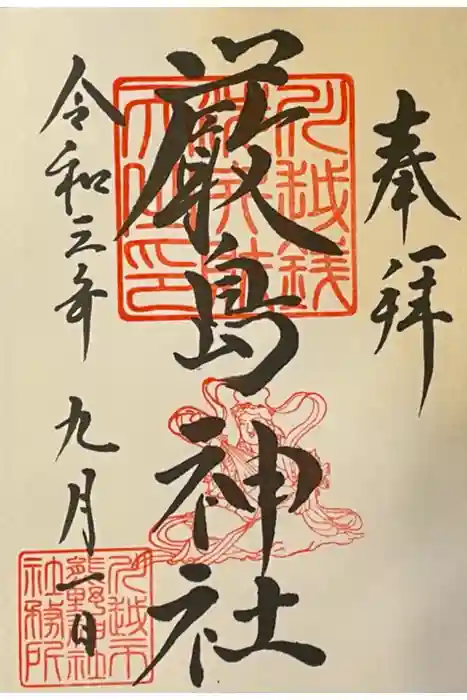 奉拝
厳島神社
令和三年
九月一日
川越市
熊野神社
社務所